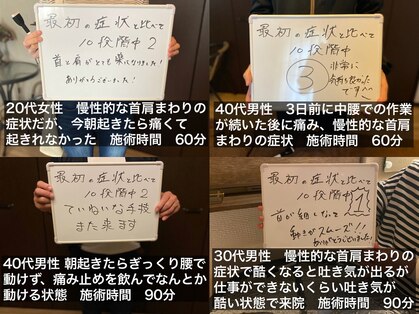 最初の症状と比べて
10段階中2
首と肩がとても楽になりました!
ありがとうございました!
20代女性 慢性的な首肩まわりの
症状だが、今朝起きたら痛くて
起きれなかった 施術時間 60分
最初の症状と比べて
10段階中
③
非常に
40代男性 3日前に中腰での作業
が続いた後に痛み、慢性的な首肩
まわりの症状 施術時間 60分
最初の症状と比べて
10段階中2
ていねいな手技
また来ます
40代男性 朝起きたらぎっくり腰で
動けず、痛み止めを飲んでなんとか
動ける状態 施術時間 90分
最初の症状と比べて
10段階中
1
首が細くなって
動きがスムーズ!!
ありがとうございました!
30代男性 慢性的な首肩まわりの
症状で酷くなると吐き気が出るが
仕事ができないくらい吐き気が
酷い状態で来院 施術時間 90分